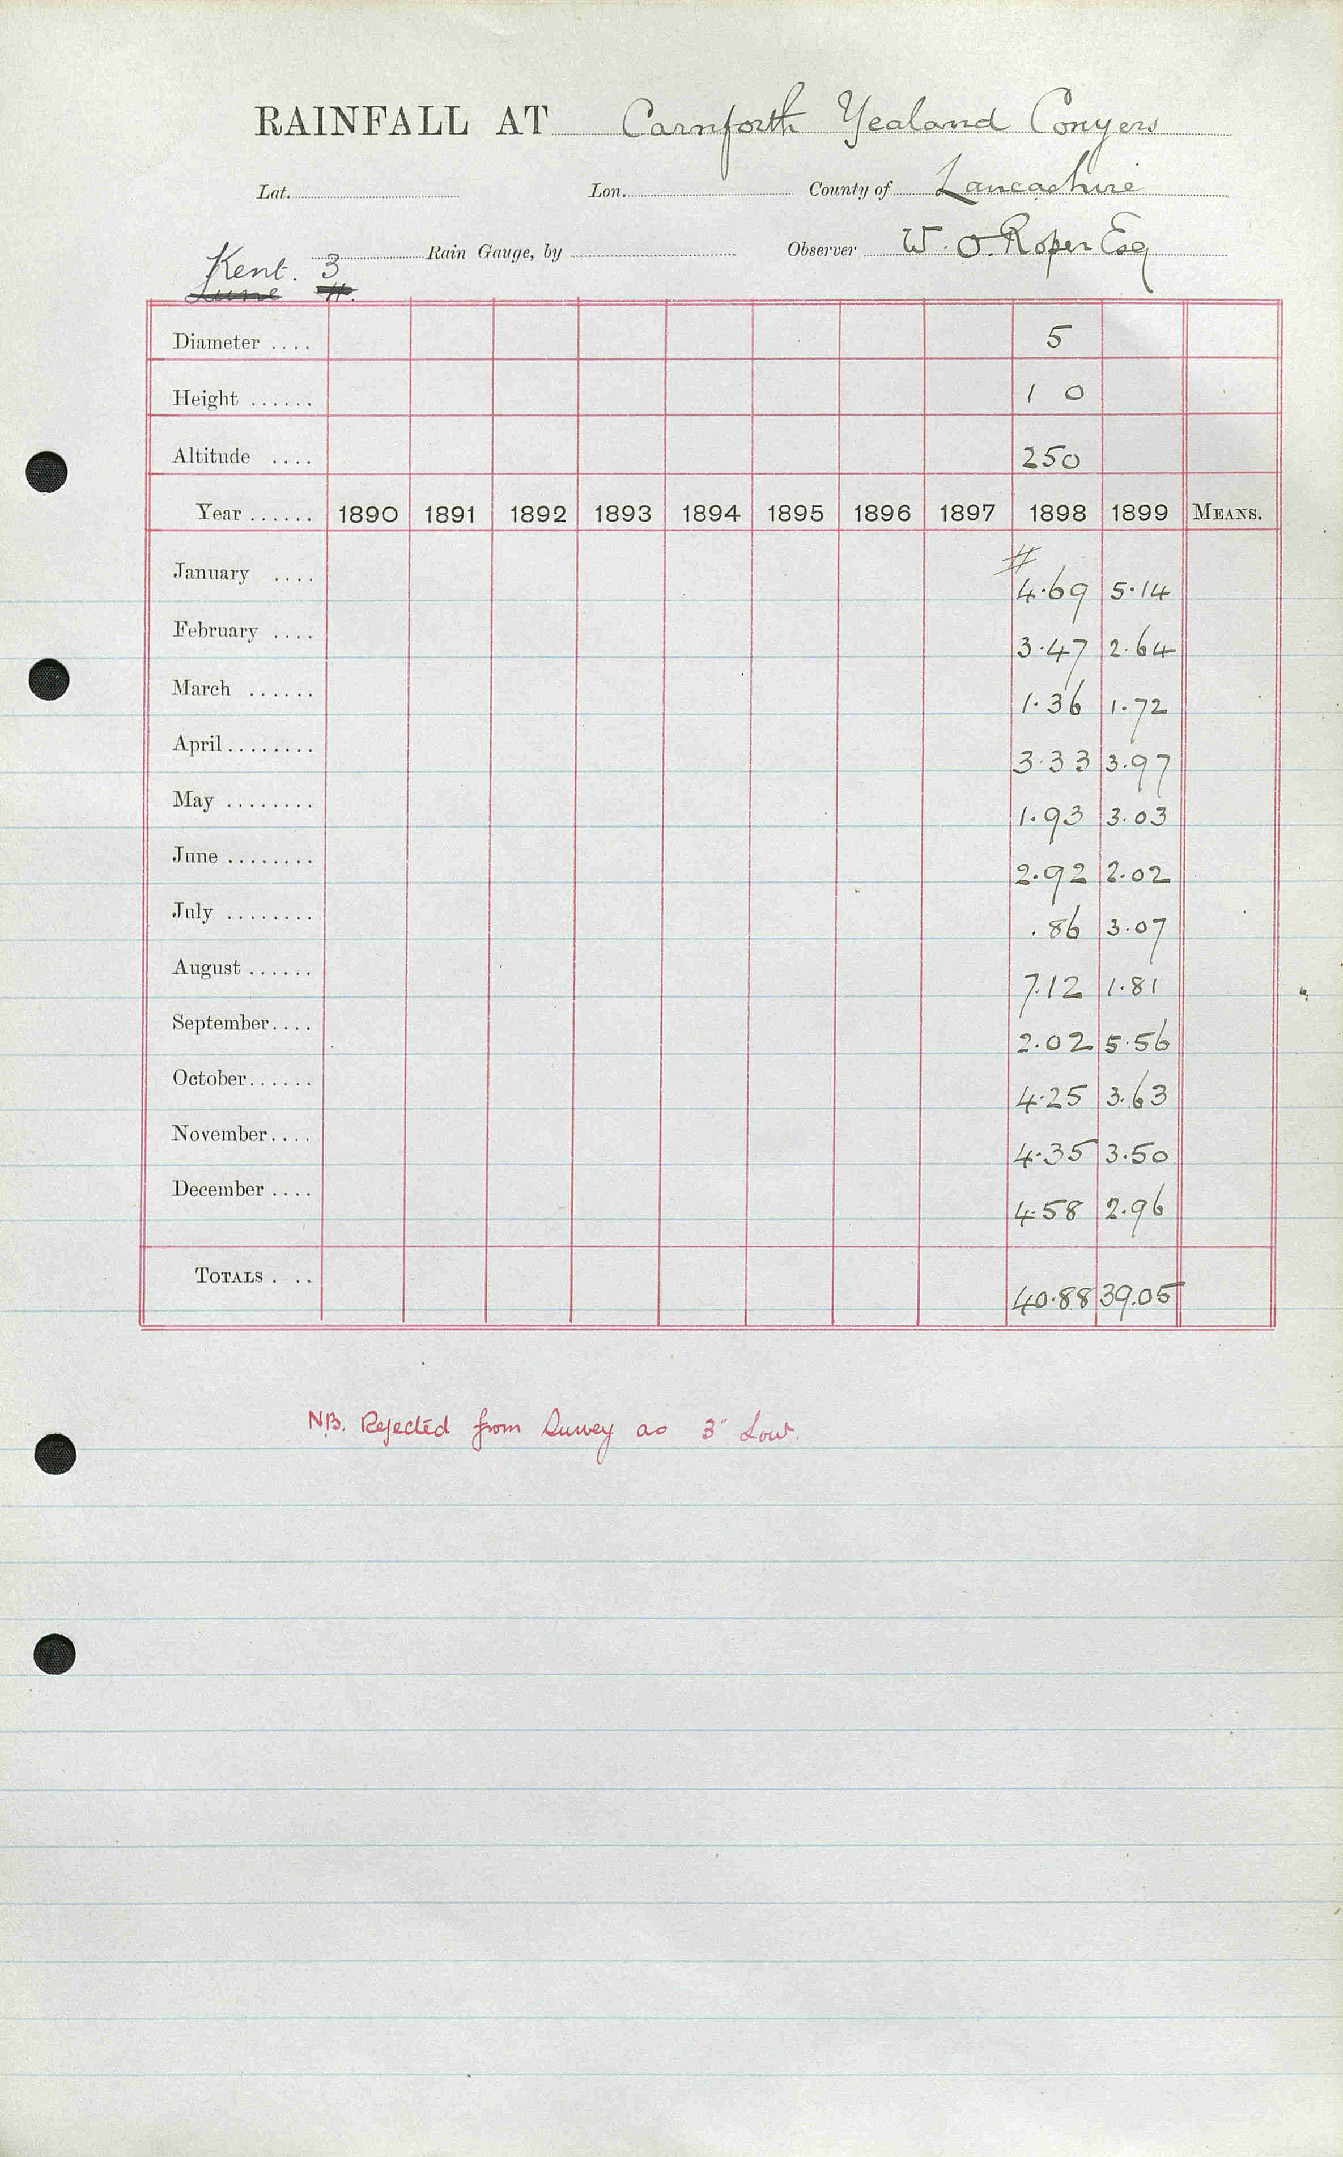 RAINFALL AT Carnforth Yealand Conyers
Lat. Lon. County of Lancashire
Kent. 3 Rain Gauge, by Observer W. O. Roper Esq
Lune
Diameter .... 5
Height ...... 1 0
Altitude .... 250
Year ...... 1890 1891 1892 1893 1894 1895 1896 1897 1898 1899 MEANS.
#
January .... 4.69 5.14
February .... 3.47 2.64
March ...... 1.36 1.72
April........ 3.33 3.97
May ........ 1.93 3.03
June ........ 2.92 2.02
July ........ .86 3.07
August ...... 7.12 1.81
September.... 2.02 5.56
October...... 4.25 3.63
November.... 4.35 3.50
December .... 4.58 2.96
TOTALS . .. 40.88 39.05
NB. Rejected from Survey as 3" Low.